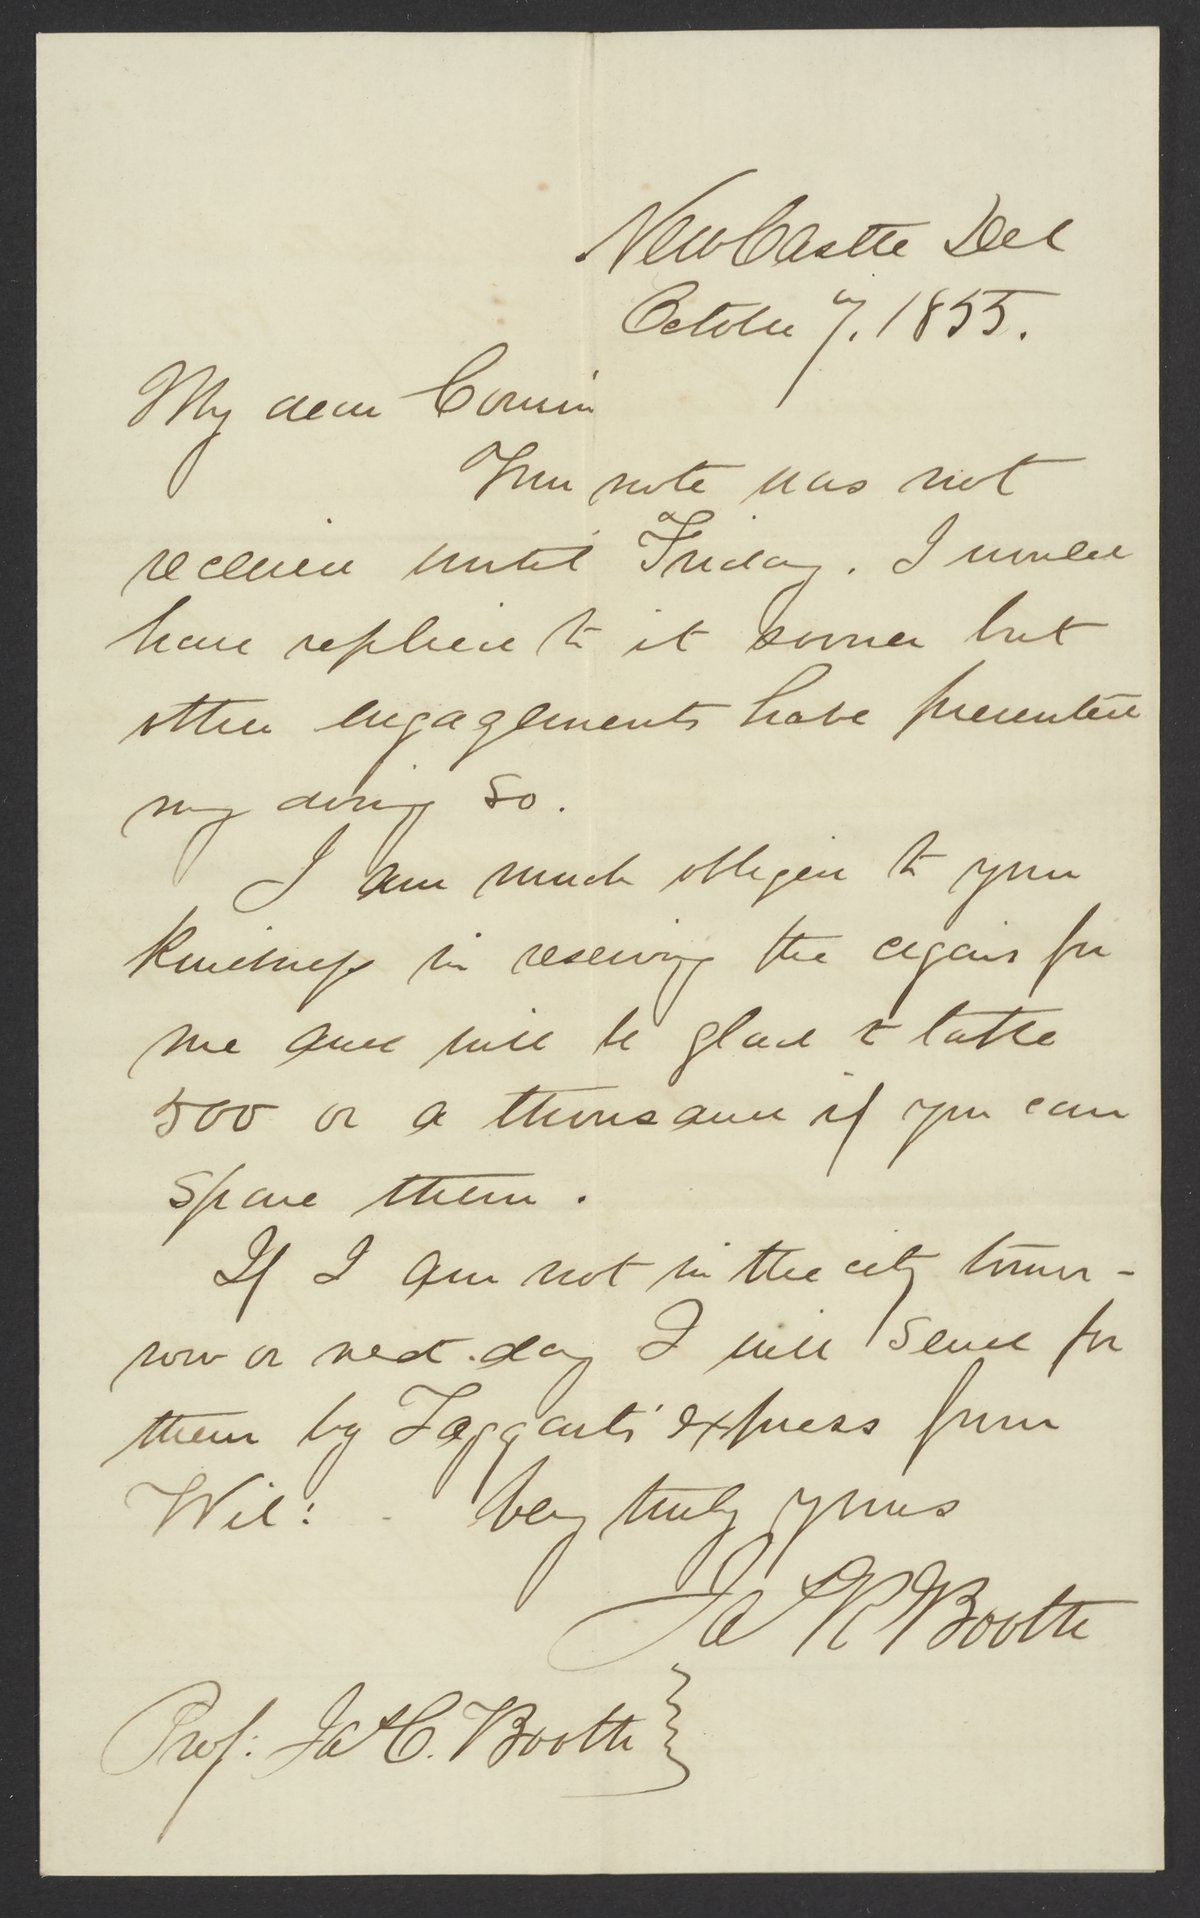 New Castle Del
October 7, 1855.
My dear Cousin
Your note was not
received until Friday. I would
have replied to it sooner but
other engagements have prevented
my doing so.
I am much obliged to your
kindness in reserving the cigars for
me and will be glad to take
500 or a thousand if you can
spare them.
If I am not in the city tomor-
row or next day I will send for
them by Taggarts' express from
Wil: Very truly yours
Jas R Booth
Prof: Jas C. Booth